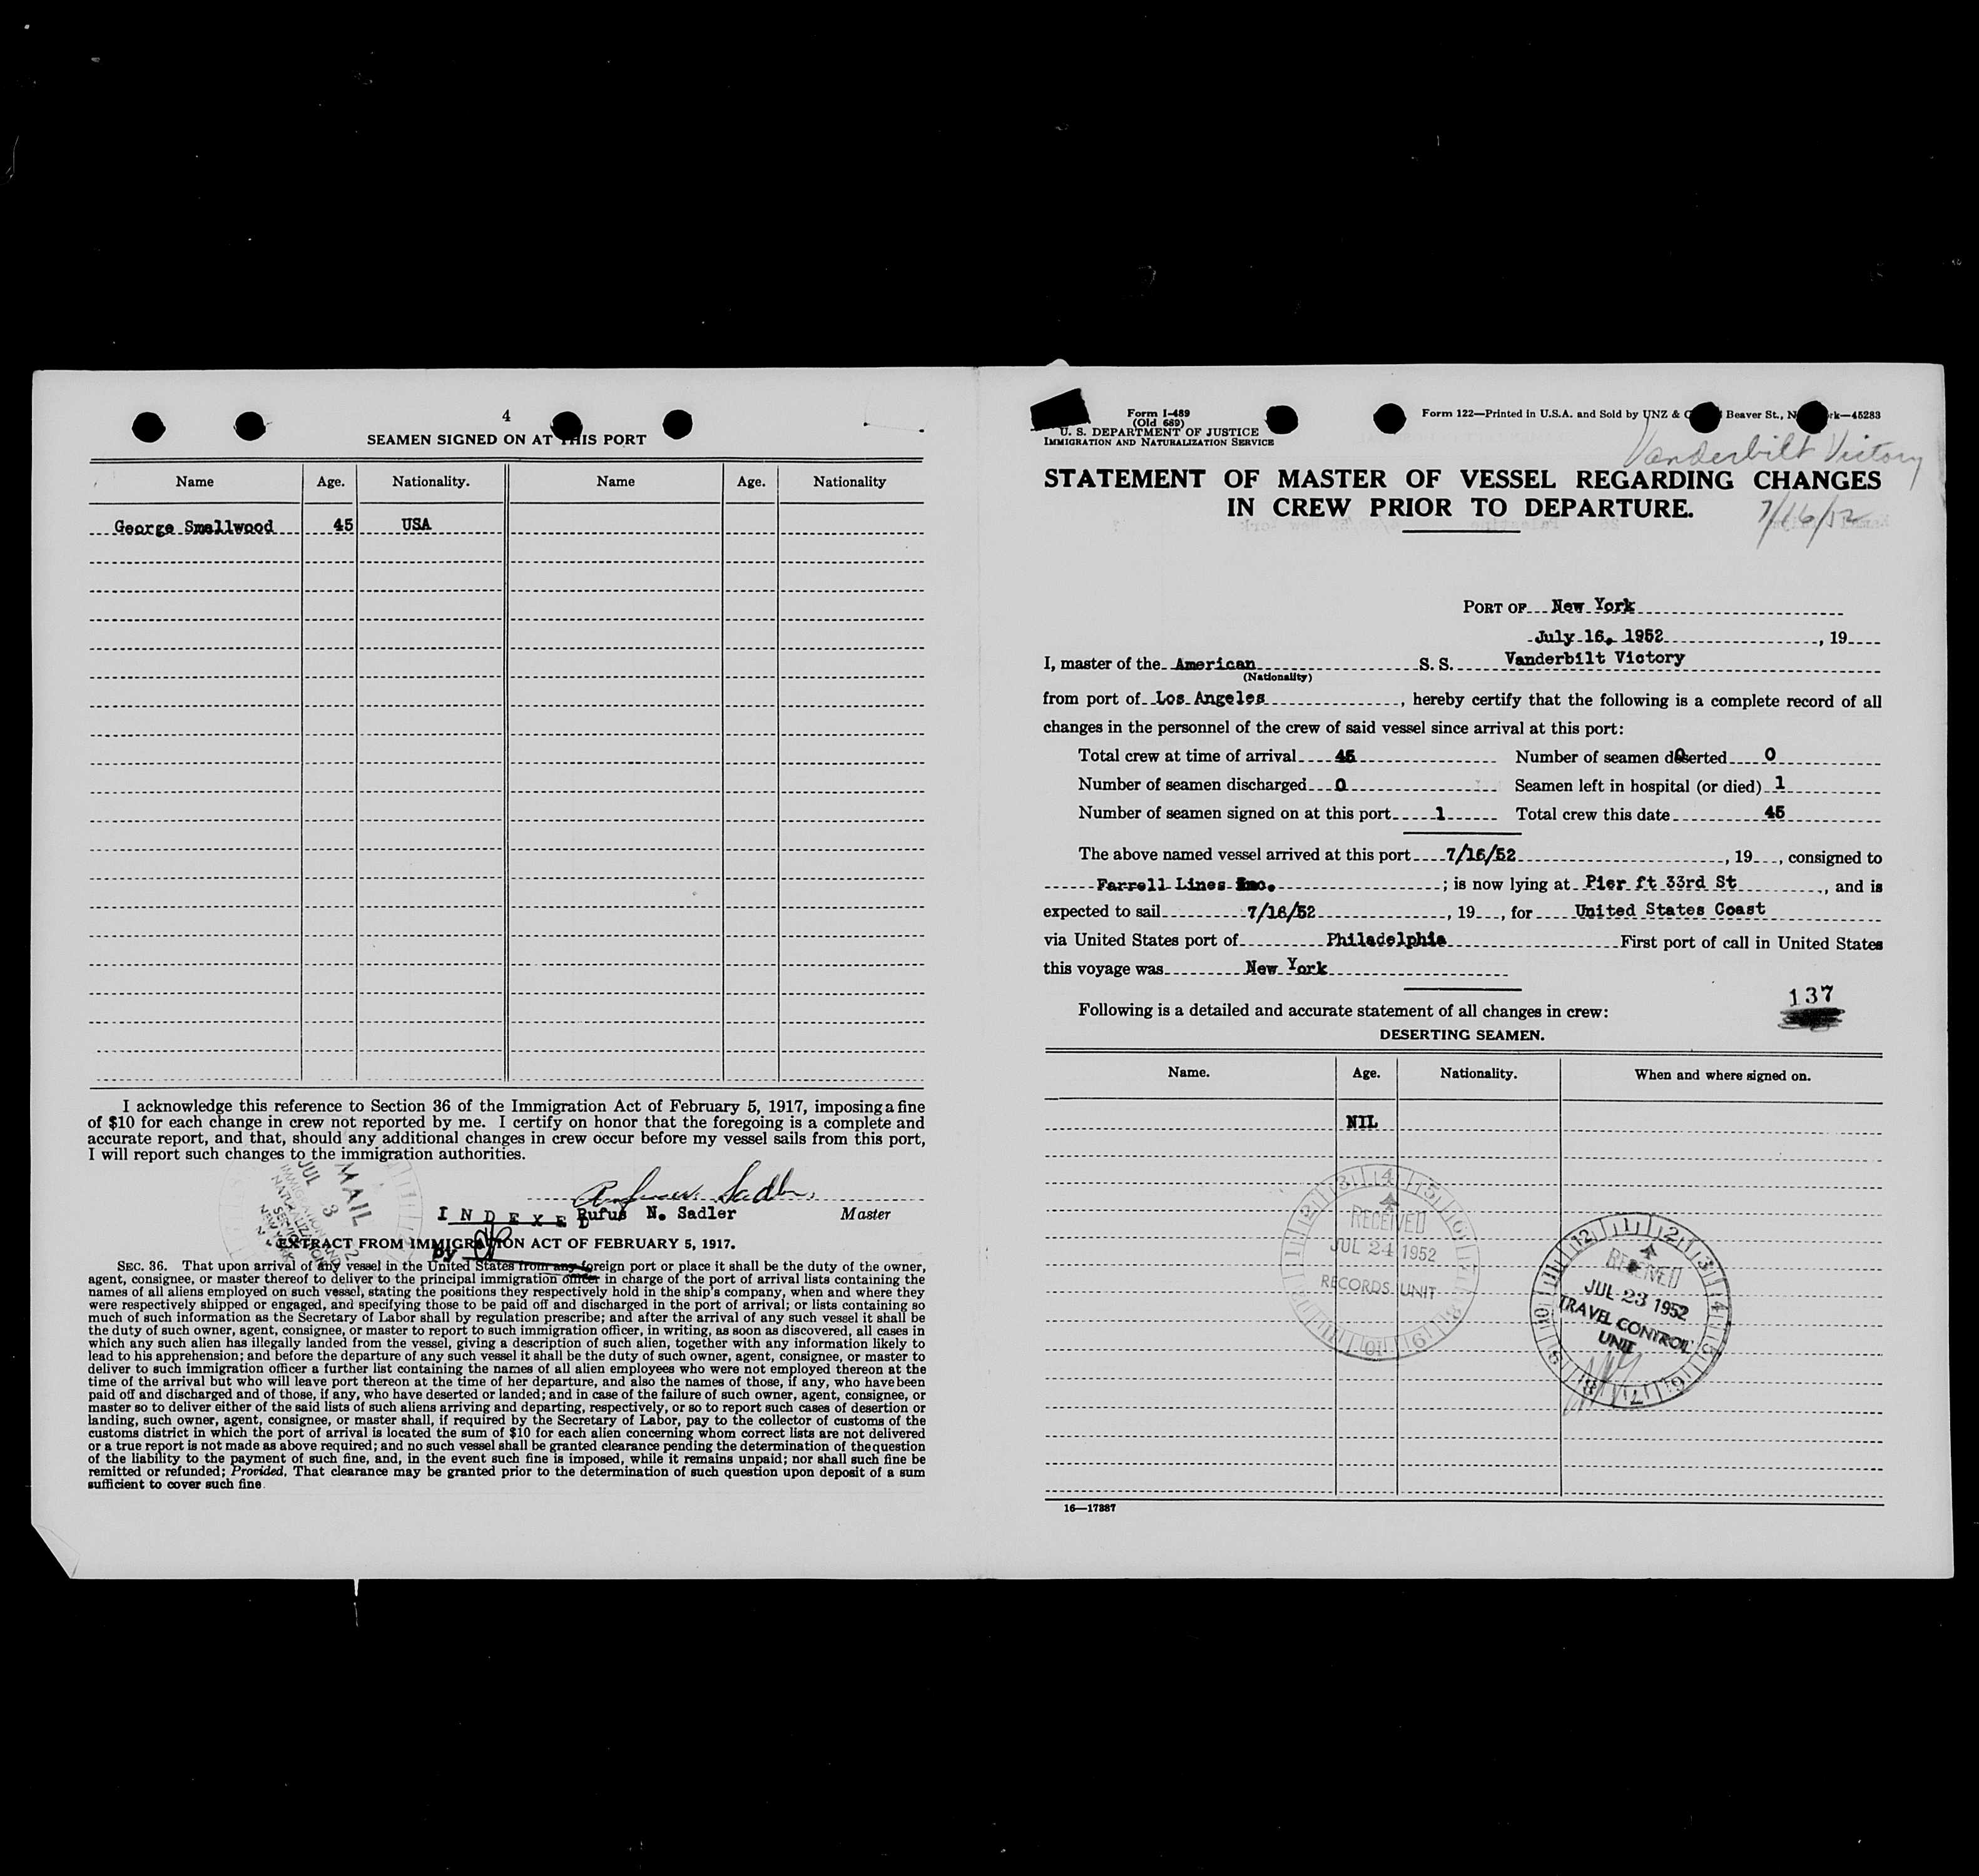 4
SEAMEN SIGNED ON AT THIS PORT
Name Age. Nationality. Name Age. Nationality
George Smallwood 45 USA
I acknowledge this reference to Section 36 of the Immigration Act of February 5, 1917, imposing a fine
of $10 for each change in crew not reported by me. I certify on honor that the foregoing is a complete and
accurate report, and that, should any additional changes in crew occur before my vessel sails from this port,
I will report such changes to the immigration authorities.
MAIL
JUL
IMMIGRATION AND
NATURALIZATION
SERVICE
NEW YORK
Rufus N. Sadler Master
INDEXED
by
EXTRACT FROM IMMIGRATION ACT OF FEBRUARY 5, 1917.
SEC. 36. That upon arrival of any vessel in the United States from any foreign port or place it shall be the duty of the owner,
agent, consignee, or master thereof to deliver to the principal immigration officer in charge of the port of arrival lists containing the
names of all aliens employed on such vessel, stating the positions they respectively hold in the ship's company, when and where they
were respectively shipped or engaged, and specifying those to be paid off and discharged in the port of arrival; or lists containing so
much of such information as the Secretary of Labor shall by regulation prescribe; and after the arrival of any such vessel it shall be
the duty of such owner, agent, consignee, or master to report to such immigration officer, in writing, as soon as discovered, all cases in
which any such alien has illegally landed from the vessel, giving a description of such alien, together with any information likely to
lead to his apprehension; and before the departure of any such vessel it shall be the duty of such owner, agent, consignee, or master to
deliver to such immigration officer a further list containing the names of all alien employees who were not employed thereon at the
time of the arrival but who will leave port thereon at the time of her departure, and also the names of those, if any, who have been
paid off and discharged and of those, if any, who have deserted or landed; and in case of the failure of such owner, agent, consignee, or
master so to deliver either of the said lists of such aliens arriving and departing, respectively, or so to report such cases of desertion or
landing, such owner, agent, consignee, or master shall, if required by the Secretary of Labor, pay to the collector of customs of the
customs district in which the port of arrival is located the sum of $10 for each alien concerning whom correct lists are not delivered
or a true report is not made as above required; and no such vessel shall be granted clearance pending the determination of the question
of the liability to the payment of such fine, and, in the event such fine is imposed, while it remains unpaid; nor shall such fine be
remitted or refunded; Provided, That clearance may be granted prior to the determination of such question upon deposit of a sum
sufficient to cover such fine.
Form I-489
(Old 689)
U. S. DEPARTMENT OF JUSTICE
IMMIGRATION AND NATURALIZATION SERVICE
Form 122—Printed in U.S.A. and Sold by UNZ & Beaver St., —45283
Vanderbilt Victory
STATEMENT OF MASTER OF VESSEL REGARDING CHANGES
IN CREW PRIOR TO DEPARTURE.
7/16/52
PORT OF New York
July 16, 1952, 19
I, master of the American S. S. Vanderbilt Victory
(Nationality)
from port of Los Angeles, hereby certify that the following is a complete record of all
changes in the personnel of the crew of said vessel since arrival at this port:
Total crew at time of arrival 45 Number of seamen deserted 0
Number of seamen discharged 0 Seamen left in hospital (or died) 1
Number of seamen signed on at this port 1 Total crew this date 45
The above named vessel arrived at this port 7/16/52, 19, consigned to
Farrell Lines Inc.; is now lying at Pier ft 33rd St, and is
expected to sail 7/16/52, 19, for United States Coast
via United States port of Philadelphia First port of call in United States
this voyage was New York
137
Following is a detailed and accurate statement of all changes in crew:
DESERTING SEAMEN.
Name. Age. Nationality. When and where signed on.
NIL
RECEIVED
JUL 24 1952
RECORDS UNIT
RECEIVED
JUL 23 1952
TRAVEL CONTROL
UNIT
16—17887